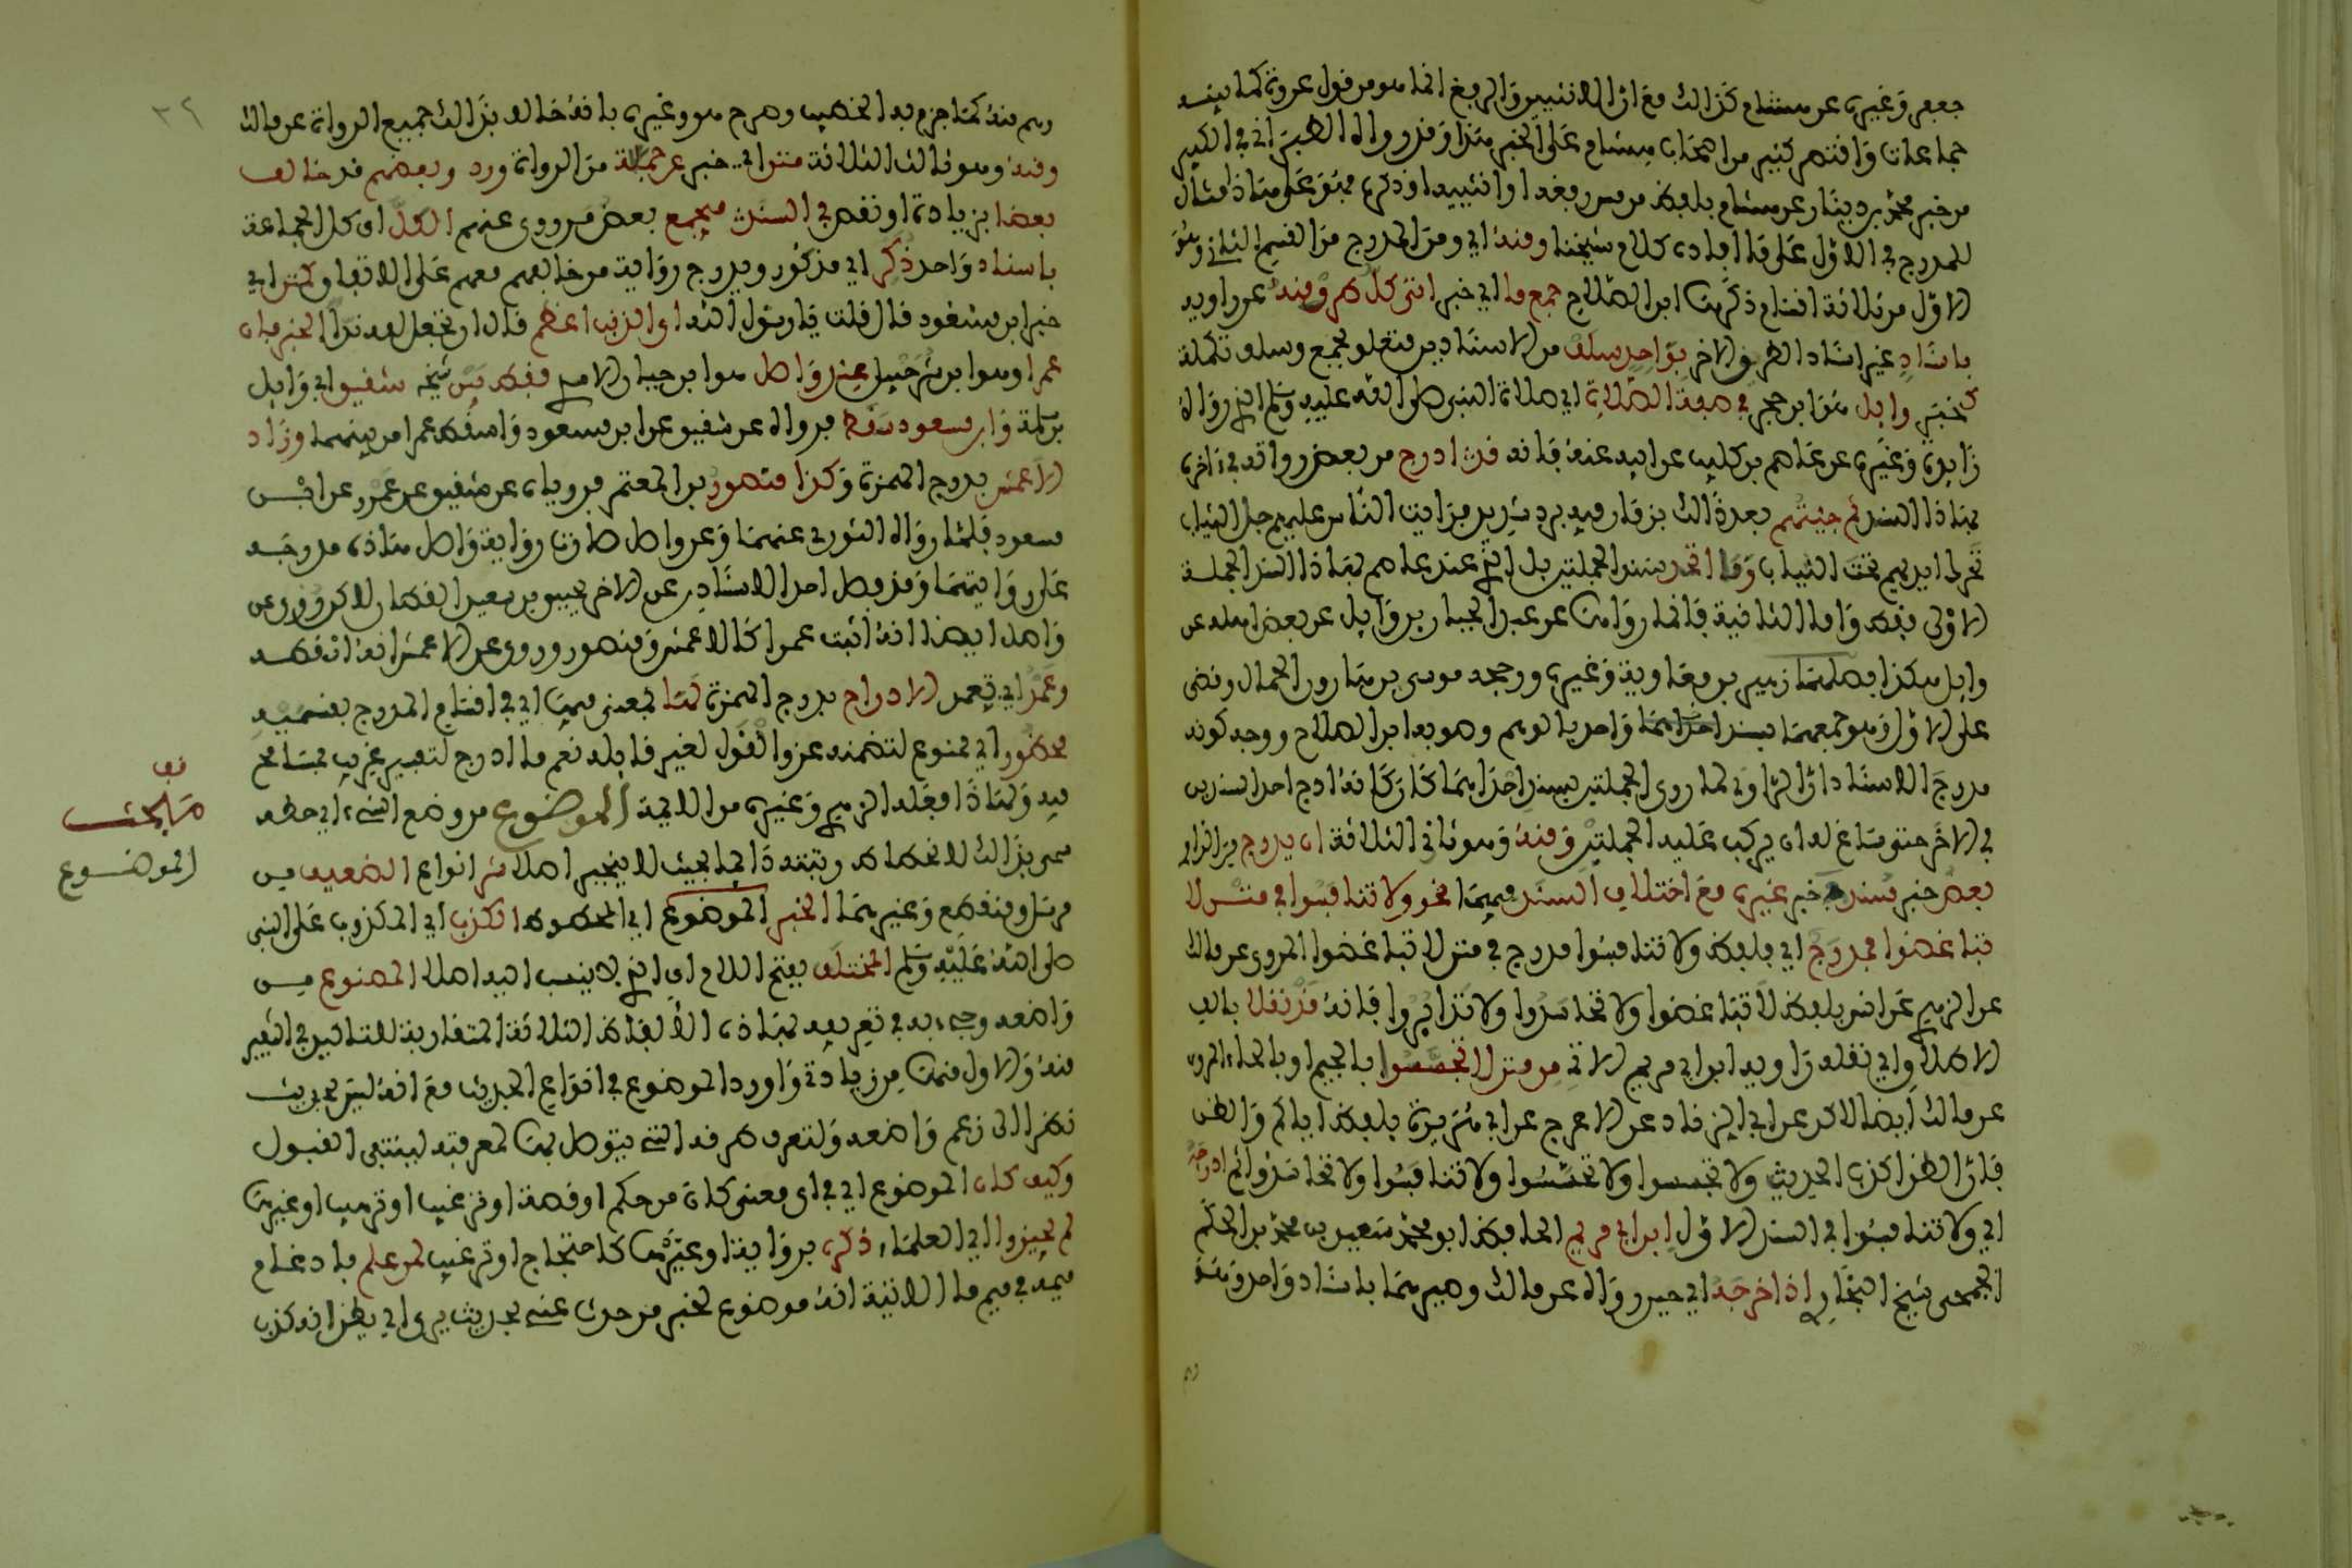 جعفر وغيره عن هشام كذلك مع ان الانثيين والرفغ انما هو من قول عروة كما بينه
جماعات واقتصر كثير من اصحاب هشام على الخبر هذا وقد رواه الطبراني في الكبير
من خبر محمد بن دينار عن هشام بلفظ من مس رفغه او انثييه او ذكره فهو على هذا مثال
للمدرج في الاول على ما افاده كلام شيخنا ومنه اي ومن المدرج من القسم الثاني وهو
الاول من ثلاثة اقسام ذكرها ابن الصلاح جمع ما اي خبر اتى كل طرف منه عن راويه
باسناد غير اسناد الطرف الاخر بواحد سلف من الاسنادين متعلق بجمع وسلف تكملة
كخبر وايل هو ابن حجر في صفة الصلاة اي صلاة النبي صلى الله عليه وسلم الذي رواه
زايدة وغيره عن عاصم بن كليب عن ابيه عنه فانه قد ادرج من بعض رواته في اخره
بهذا السند ثم جئتهم بعد ذلك بزمان فيه برد شديد فرايت الناس عليهم جل الثياب
تحرك ايديهم تحت الثياب وما اتحد سند الجملتين بل الذي عند عاصم بهذا السند الجملة
الاولى فقط واما الثانية فانما رواها عن عبد الجبار بن وايل عن بعض اهله عن
وايل هكذا فصلهما زهير بن معاوية وغيره ورجحه موسى بن هارون الحمال وقضى
على الاول وهو جمعهما بسند احدهما واحد بالوهم وصوبه ابن الصلاح ووجه كونه
مدرج الاسناد ان الراوي لما روى الجملتين بسند احداهما كان كانه ادرج احد السندين
في الاخر حتى ساغ له ان يركب عليه الجملتين ومنه وهو ثاني الثلاثة ان يدرج من الراوي
بعض خبر مسند في خبر غيره مع اختلاف السند فيهما نحو ولا تنافسوا في متن لا
تباغضوا فمدرج اي بلفظ ولا تنافسوا مدرج في متن لا تباغضوا المروي عن مالك
عن الزهري عن انس بلفظ لا تباغضوا ولا تحاسدوا ولا تدابروا فانه قد نقلا بالف
الاطلاق اي نقله راويه ابن ابي مريم الاتي من متن لا تجسسوا بالجيم او بالحاء المروي
عن مالك ايضا لاكن عن ابي الزناد عن الاعرج عن ابي هريرة بلفظ اياكم والظن
فان الظن اكذب الحديث ولا تجسسوا ولا تحسسوا ولا تنافسوا ولا تحاسدوا ثم ادرجه
اي ولا تنافسوا في السند الاول ابن ابي مريم الحافظ ابو محمد سعيد بن محمد بن الحكم
الجمحي شيخ البخاري اذ اخرجه اي حين رواه عن مالك وصيرهما باسناد واحد وهو
وهم منه كما جزم به الخطيب وصرح هو وغيره بانه خالف بذلك جميع الرواة عن مالك
ومنه وهو ثالث الثلاثة متن اي خبر عن جماعة من الرواة ورد وبعضهم قد خالف
بعضا بزيادة او نقص في السند فيجمع بعض من روى عنهم الكل اي كل الجماعة
باسناد واحد ذكر اي مذكور ويدرج رواية من خالفهم معهم على الاتفاق كمتن اي
خبر ابن مسعود قال قلت يا رسول الله اي الذنب اعظم قال ان تجعل لله ندا الخبر فان
عمرا وهو ابن شرحبيل عند واصل هو ابن حيان الاسدي فقط بين شيخه شقيق ابي وايل
بن سلمة وابن مسعود سقط فرواه عن شقيق عن ابن مسعود واسقط عمرا من بينهما وزاد
الاعمش بدرج الهمزة وكذا منصور بن المعتمر فروياه عن شقيق عن عمرو عن ابن
مسعود فلما رواه الثوري عنهما وعن واصل صارت رواية واصل هذه مدرجة
على روايتهما وقد فصل احد الاسنادين عن الاخر يحيى بن سعيد القطان لاكن روي عن
واصل ايضا انه اثبت عمرا كالاعمش ومنصور وروي عن الاعمش انه اسقطه
وعمد اي تعمد الادراج بدرج الهمزة لها بمعنى فيها اي في اقسام المدرج بقسميه
محظور اي ممنوع لتضمنه عزو القول لغير قايله نعم ما ادرج لتفسير غريب فمسامح
فيه ولهذا فعله الزهري وغيره من الايمة الموضوع من وضع الشيء اي حطه
سمي بذلك لانحطاط رتبته دايما بحيث لا ينجبر اصلا شر انواع الضعيف من
مرسل ومنقطع وغيرهما الخبر الموضوع اي المحطوط الكذب اي المكذوب على النبي
صلى الله عليه وسلم المختلق بفتح اللام اي الذي لا ينسب اليه اصلا المصنوع من
واضعه وجيء به في تعريفه بهذه الالفاظ الثلاثة المتقاربة للتاكيد في التنفير
منه والاول منها من زيادته واورد الموضوع في انواع الحديث مع انه ليس بحديث
نظرا الى زعم واضعه ولتعرف طرقه التي يتوصل بها لمعرفته لينتفي القبول
وكيف كان الموضوع اي في اي معنى كان من حكم او قصة او ترغيب او ترهيب او غيرها
لم يجيزوا اي العلماء ذكره برواية او غيرها كاحتجاج او ترغيب لمن علم بادغام
ميمه في ميم ما الاتية انه موضوع لخبر من حدث عني بحديث يرى اي يظن انه كذب
قف
مبحث
الموضوع